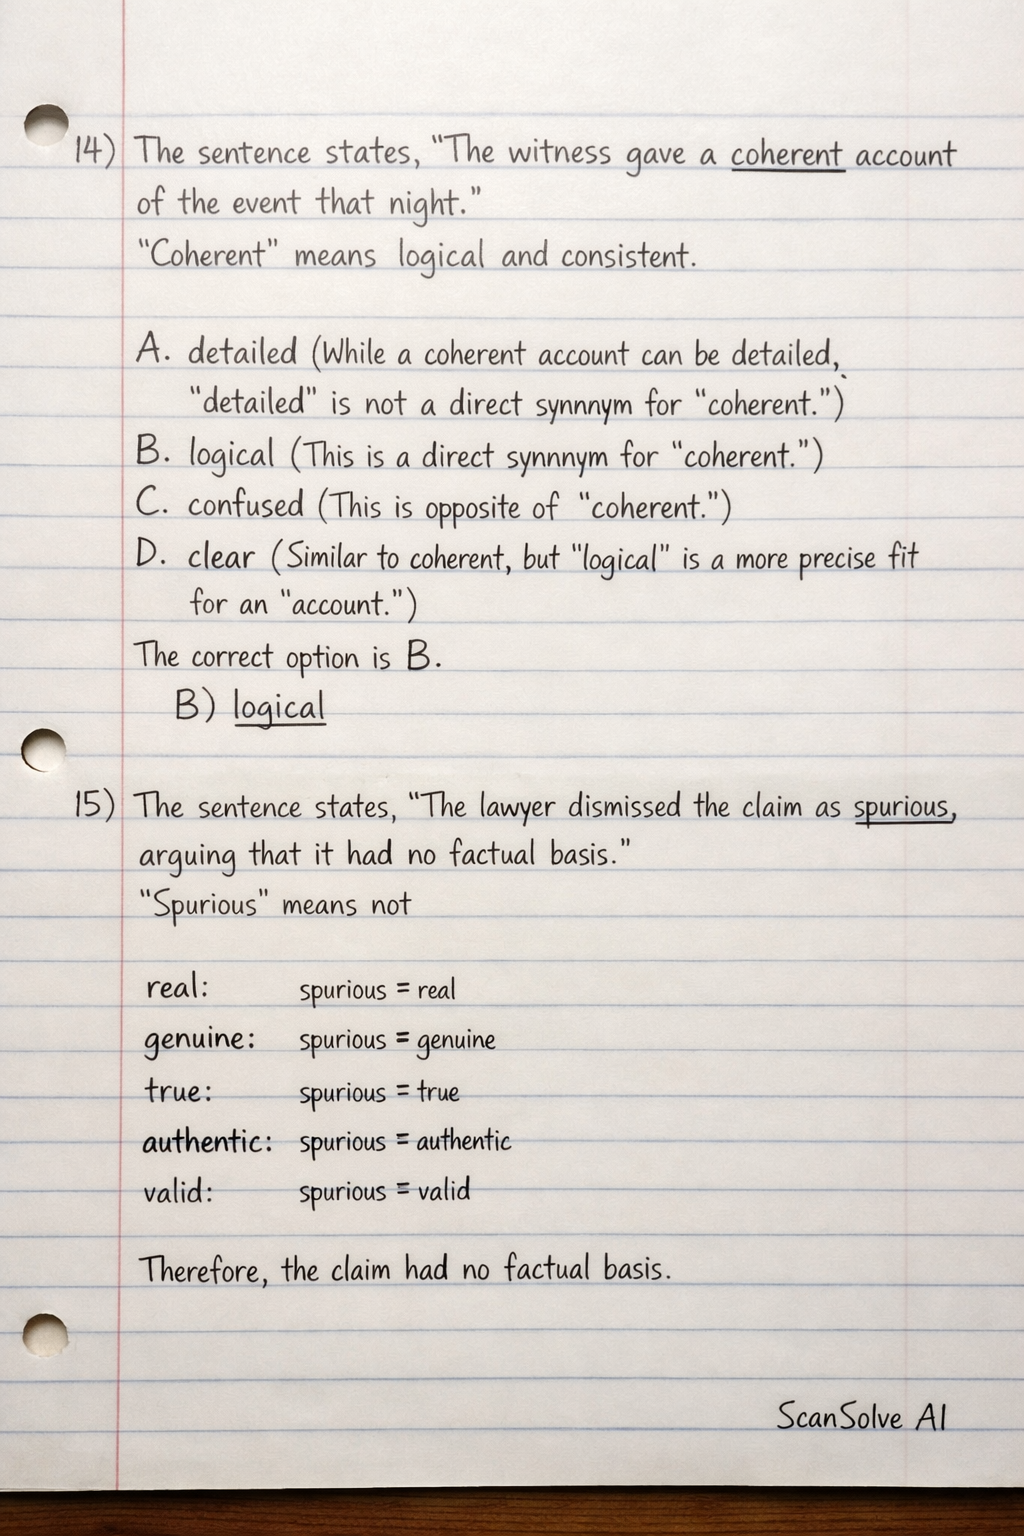 14) The sentence states, "The witness gave a coherent account
of the event that night."
"Coherent" means logical and consistent.
A. detailed (While a coherent account can be detailed,
"detailed" is not a direct synnnym for "coherent.")
B. logical (This is a direct synnnym for "coherent.")
C. confused (This is opposite of "coherent.")
D. clear (Similar to coherent, but "logical" is a more precise fit
for an "account.")
The correct option is B.
B) logical
15) The sentence states, "The lawyer dismissed the claim as spurious,
arguing that it had no factual basis."
"Spurious" means not
real: spurious = real
genuine: spurious = genuine
true: spurious = true
authentic: spurious = authentic
valid: spurious = valid
Therefore, the claim had no factual basis.
ScanSolve AI